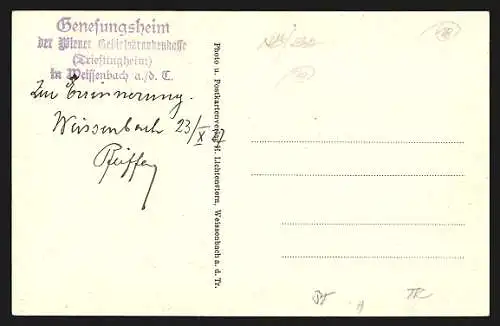 Genesungsheim
der Wiener Gebietskrankenkasse
(Triestingheim)
in Weissenbach a./d. T.
Zur Erinnerung.
Weissenbach 23/X 27
Pfeiffer
Photo u. Postkartenverlag H. Lichtenstern, Weissenbach a. d. Tr.
TR